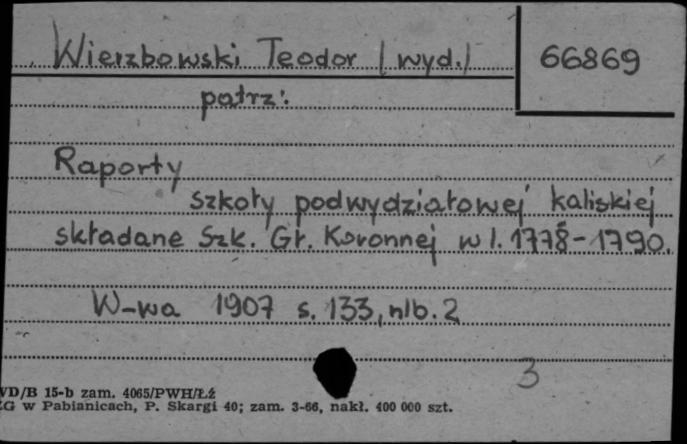 Wierzbowski Teodor (wyd.) 66869
patrz:
Raporty
szkoły podwydziałowej kaliskiej
składane Szk. Gł. Koronnej w l. 1778-1790.
W-wa 1907 s. 133, nlb. 2
3
WD/B 15-b zam. 4065/PWH/Łź
ŁG w Pabianicach, P. Skargi 40; zam. 3-66, nakł. 400 000 szt.